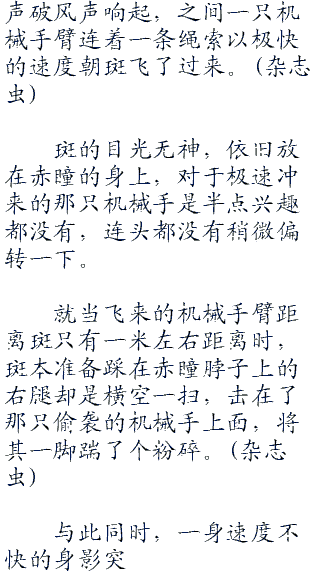 声破风声响起，之间一只机
械手臂连着一条绳索以极快
的速度朝斑飞了过来。(杂志
虫)
斑的目光无神，依旧放
在赤瞳的身上，对于极速冲
来的那只机械手是半点兴趣
都没有，连头都没有稍微偏
转一下。
就当飞来的机械手臂距
离斑只有一米左右距离时，
斑本准备踩在赤瞳脖子上的
右腿却是横空一扫，击在了
那只偷袭的机械手上面，将
其一脚踹了个粉碎。(杂志
虫)
与此同时，一身速度不
快的身影突